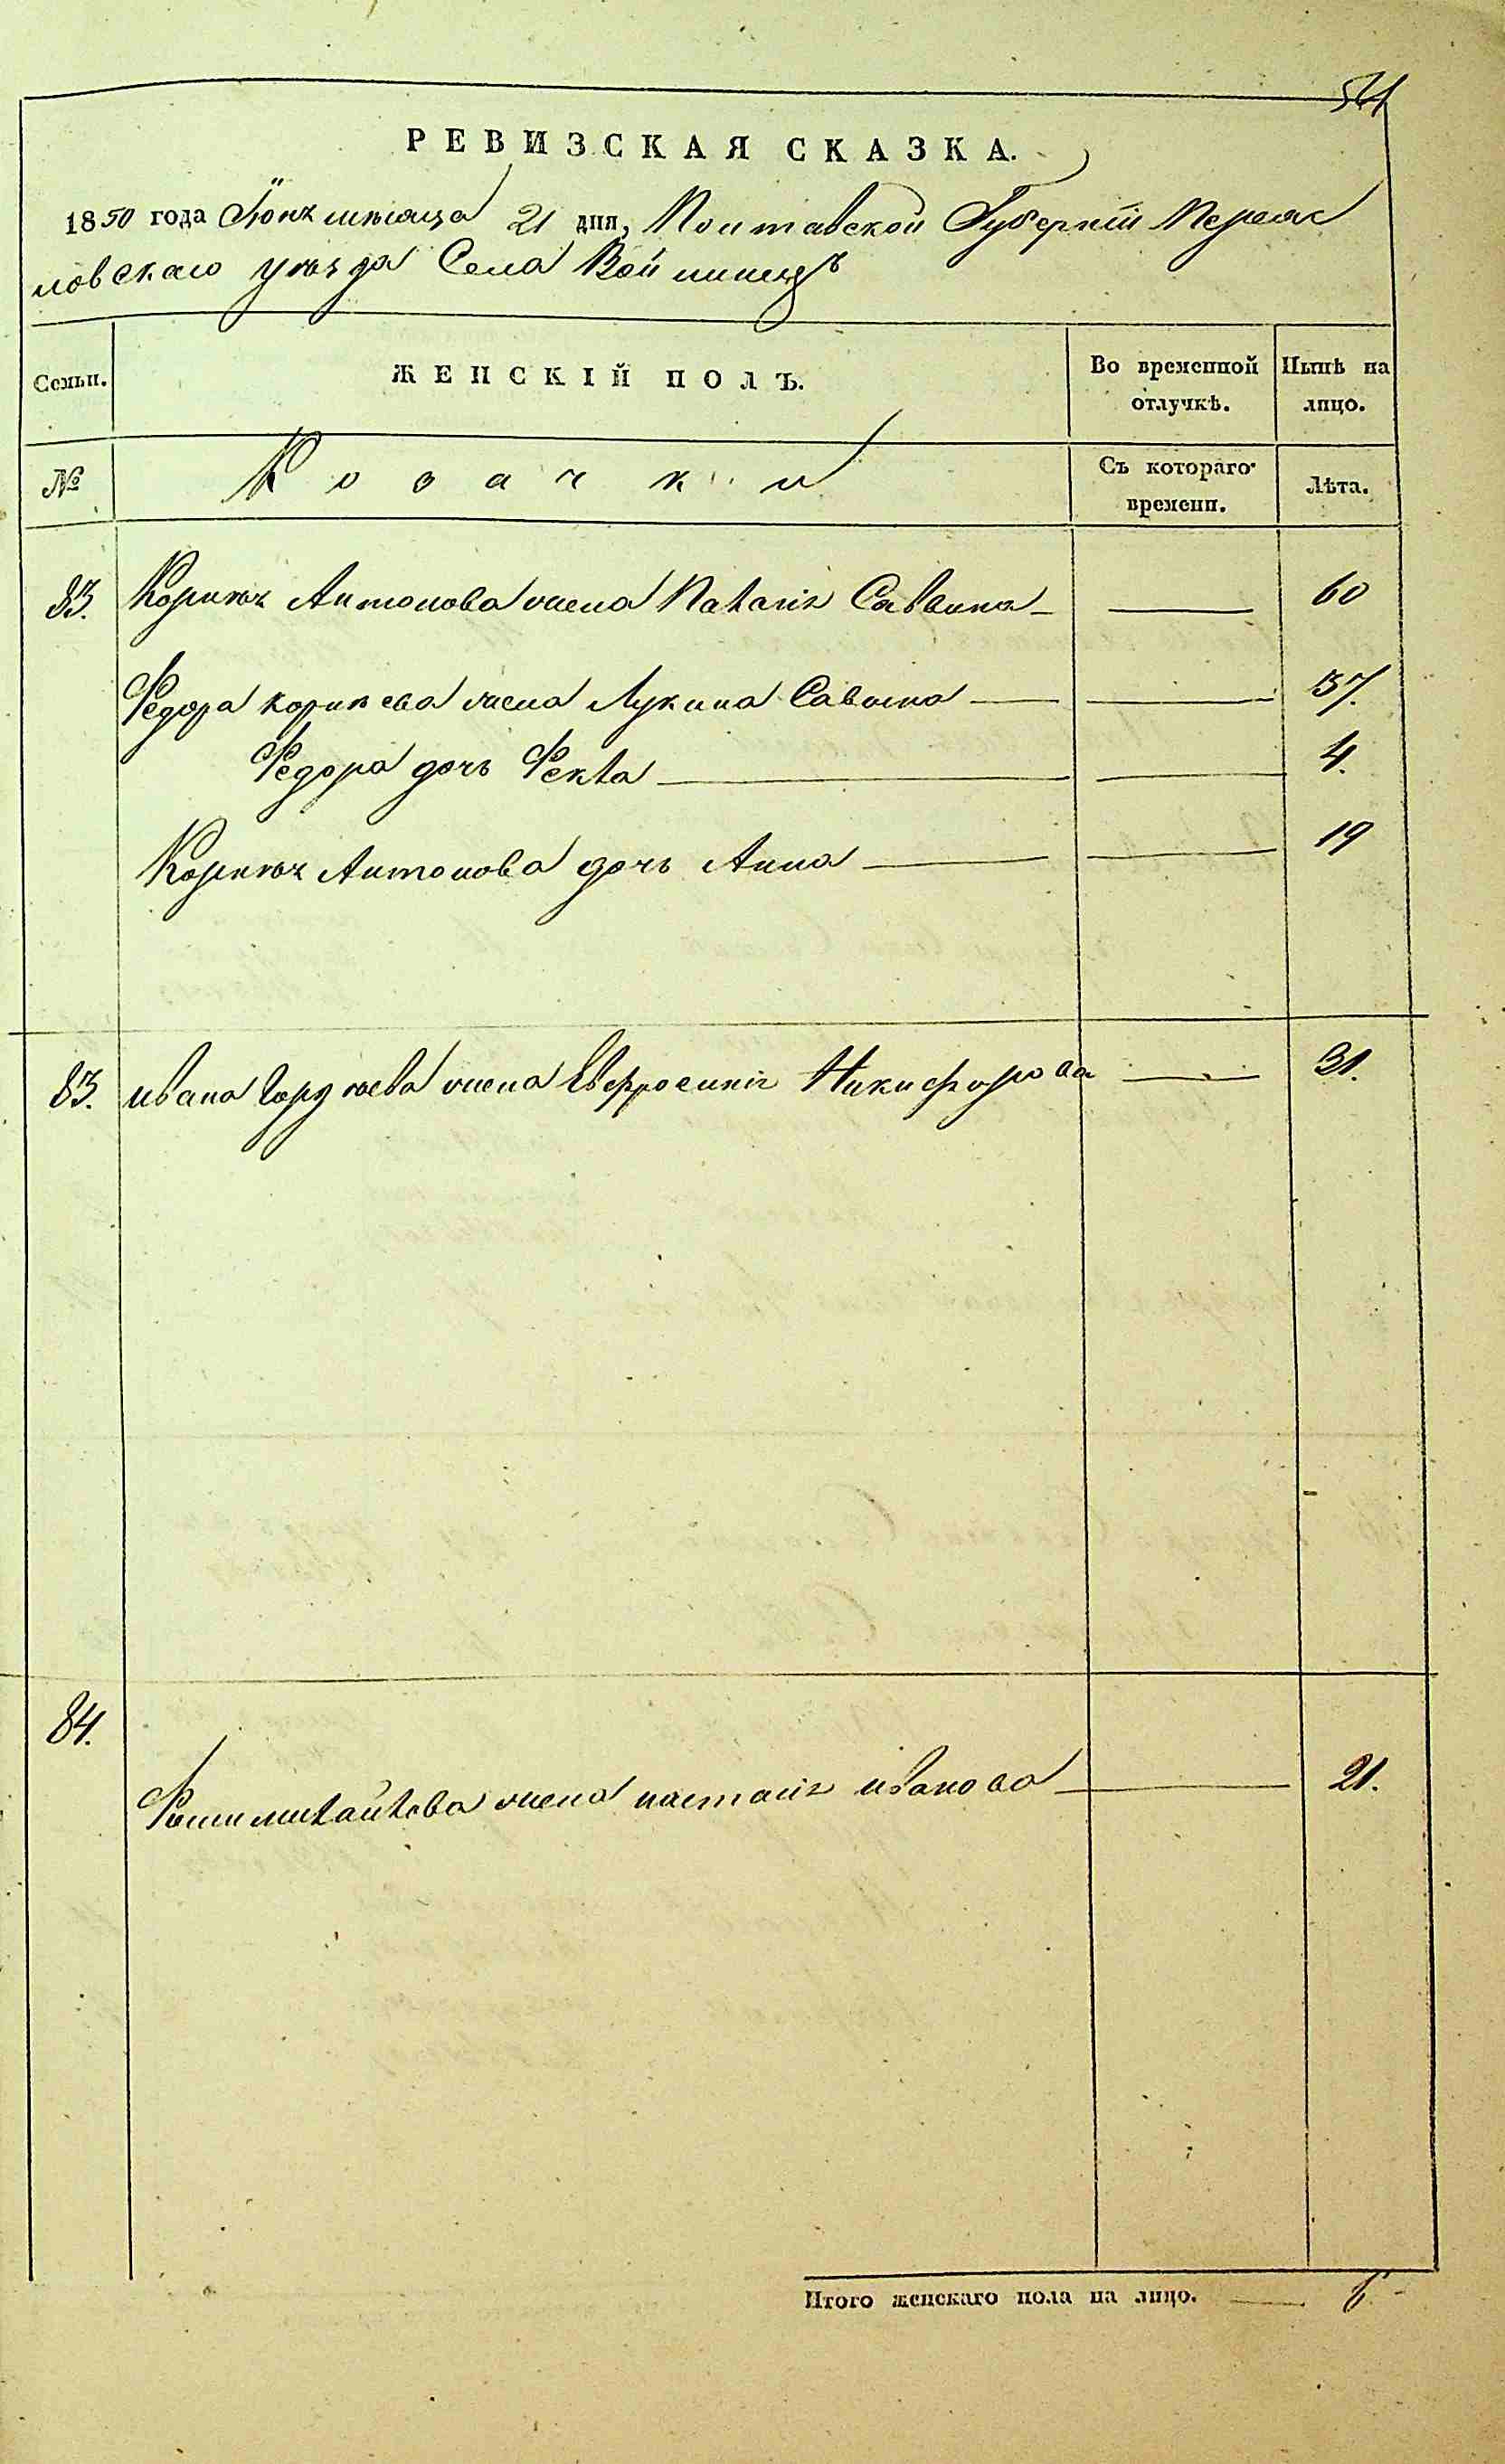 541
РЕВИЗСКАЯ СКАЗКА.
1850 года Іюня мѣсяца 21 дня, Полтавской Губерніи Переяс
ловскаго уѣзда Села Войтинецъ
Семьи. ЖЕНСКІЙ ПОЛЪ. Во временной отлучкѣ. Нынѣ на лицо.
№ Козачки Съ котораго времени. Лѣта.
83. Корнѣя Антонова жена Наталія Саввина — — 60
Федора корнѣева жена Лукина Савина — — 37.
Федора дочь Фекла — — 4.
Корнѣя Антонова дочь Анна — — 19
83. ивана Гордѣева жена Евфросинія Никифорова — 31.
84. михайлова жена настасія иванова — 21.
Итого женскаго пола на лицо. — 6